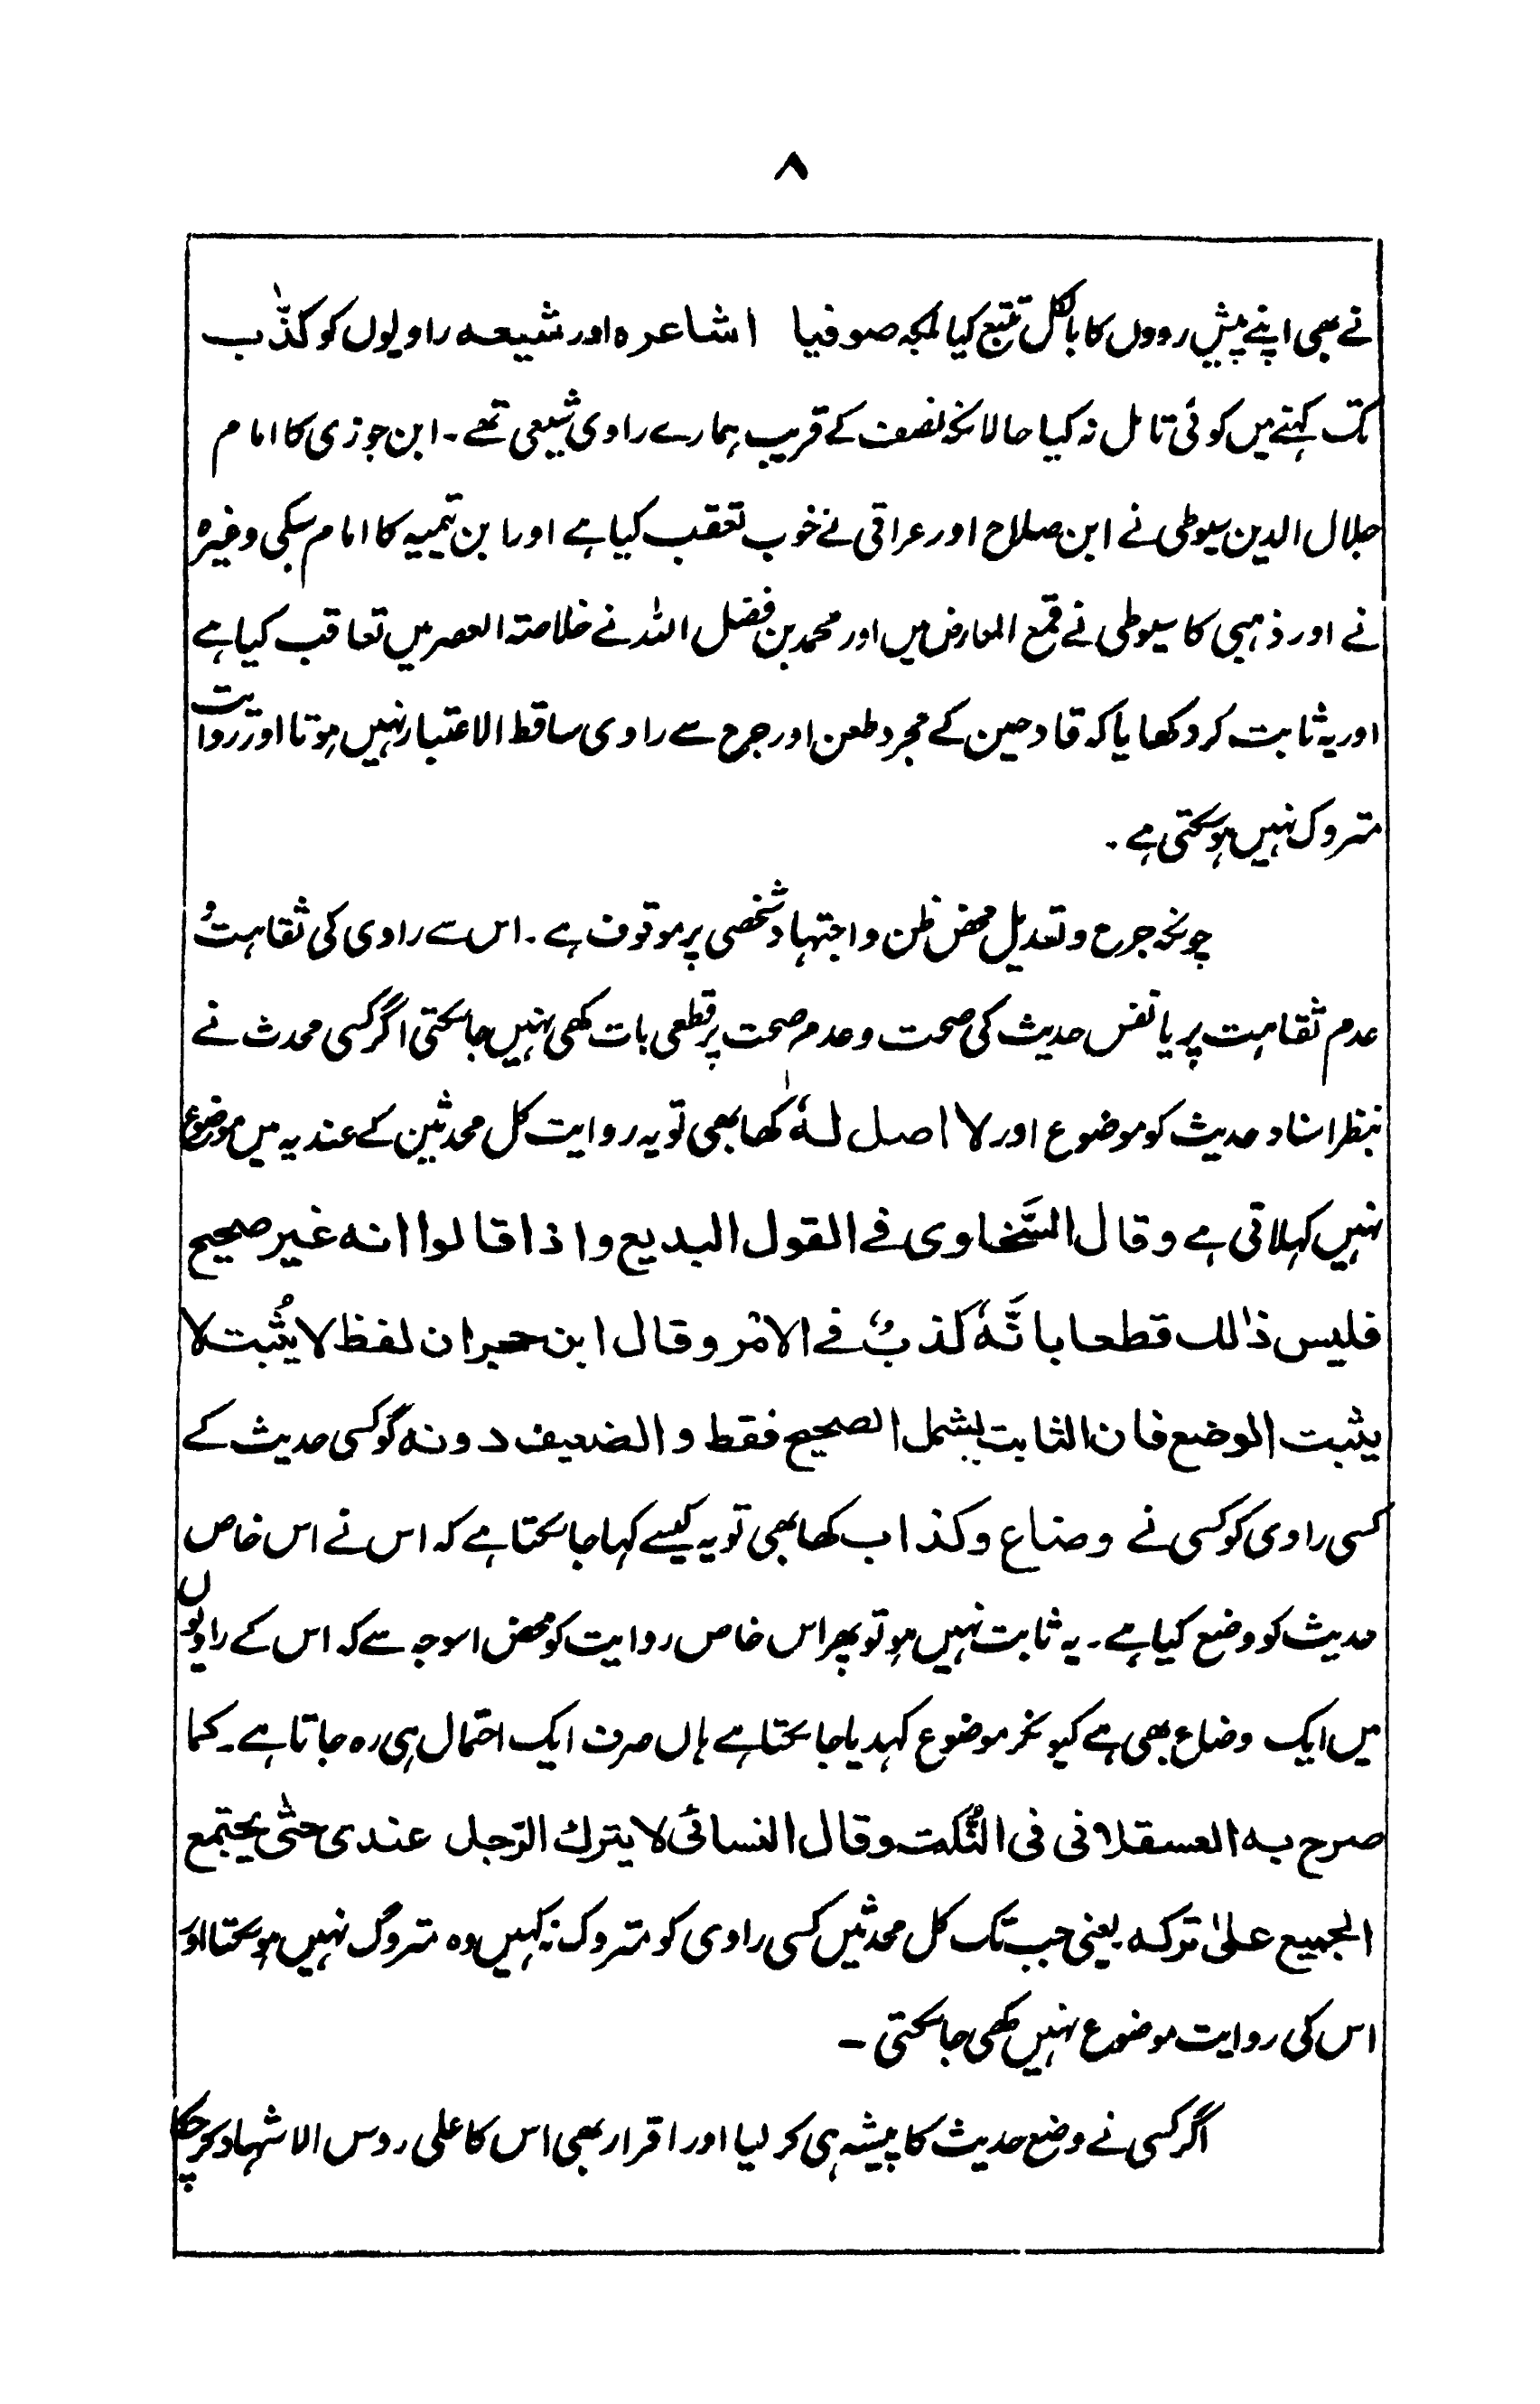 ۸
نے بھی اپنے پیش رووں کا بالکل تتبع کیا بلکہ صوفیا اشاعرہ اور شیعہ راویوں کو کذّاب
تک کہنے میں کوئی تامل نہ کیا حالانکہ نصف کے قریب ہمارے راوی شیعی تھے۔ ابن جوزی کا امام
جلال الدین سیوطی نے ابن صلاح اور عراقی نے خوب تعقب کیا ہے اور ابن تیمیہ کا امام سبکی وغیرہ
نے اور ذہبی کا سیوطی نے قمع المعارض میں اور محمد بن فضل اللہ نے خلاصتہ العصر میں تعاقب کیا ہے
اور یہ ثابت کر دکھایا کہ قادحین کے مجرد طعن اور جرح سے راوی ساقط الاعتبار نہیں ہوتا اور روایت
متروک نہیں ہو سکتی ہے۔
چونکہ جرح و تعدیل محض ظن و اجتہاد شخصی پر موقوف ہے۔ اس سے راوی کی ثقاہت و
عدم ثقاہت پر یا نفس حدیث کی صحت و عدم صحت پر قطعی بات کہی نہیں جا سکتی اگر کسی محدث نے
بنظر اسناد حدیث کو موضوع اور لا اصل لہٗ کہا بھی تو یہ روایت کل محدثین کے عندیہ میں موضوع
نہیں کہلاتی ہے وقال السَّخاوی فے القول البدیع واذا قالوا انہ غیر صحیح
فلیس ذٰلک قطعا بانَّہٗ کذبٌ فے الامْر وقال ابن حجر ان لفظ لا یثُبت لا
یثبت الوضع فان الثابت یشمل الصحیح فقط والضعیف دونہ گو کسی حدیث کے
کسی راوی کو کسی نے وضاع و کذاب کہا بھی تو یہ کیسے کہا جا سکتا ہے کہ اس نے اس خاص
حدیث کو وضع کیا ہے۔ یہ ثابت نہیں ہو تو پھر اس خاص روایت کو محض اسوجہ سے کہ اس کے راویوں
میں ایک وضاع بھی ہے کیونکر موضوع کہدیا جا سکتا ہے ہاں صرف ایک احتمال ہی رہ جاتا ہے۔ کما
صرح بہ العسقلانی فی النُّکت وقال النسائی لا یترك الرّجل عندی حتٰی یجتمع
الجمیع علیٰ ترکہ یعنی جب تک کل محدثین کسی راوی کو متروک نہ کہیں وہ متروک نہیں ہو سکتا اور
اس کی روایت موضوع نہیں کہی جا سکتی ۔
اگر کسی نے وضع حدیث کا پیشہ ہی کر لیا اور اقرار بھی اس کا علی روس الاشہاد کر چکا